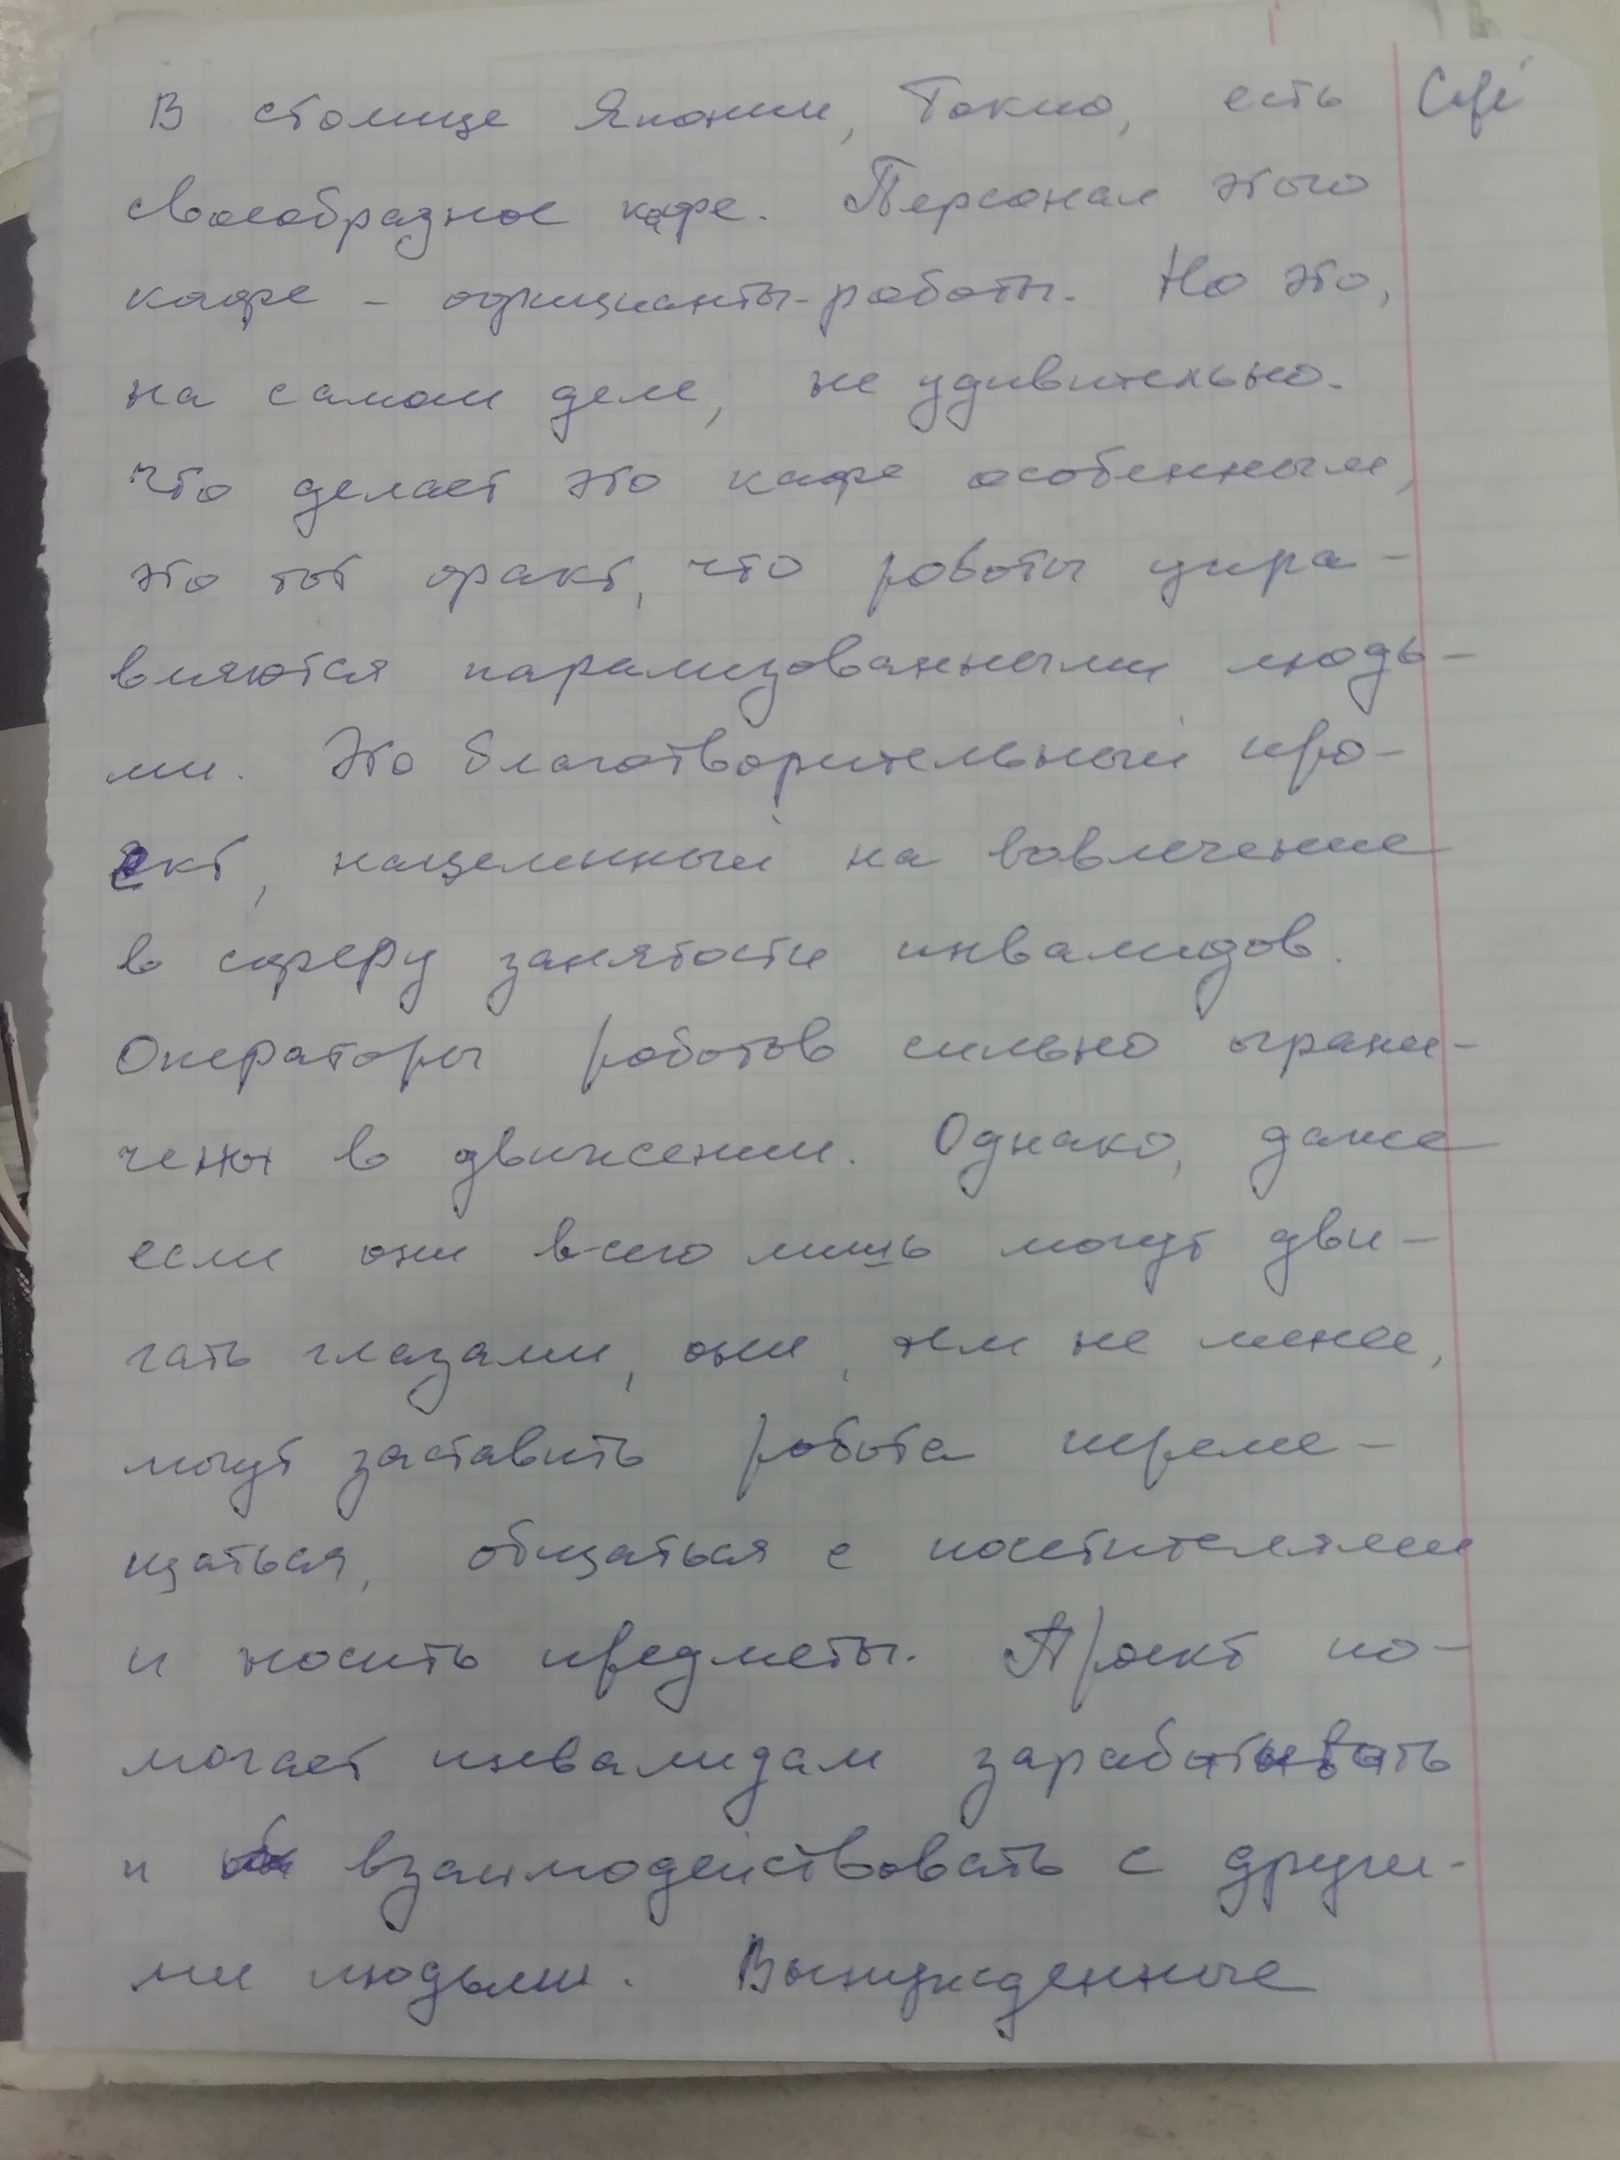 В столице Японии, Токио, есть Café
своеобразное кафе. Персонал этого
кафе - официанты-роботы. Но это,
на самом деле, не удивительно.
Что делает это кафе особенным,
это тот факт, что роботы упра-
вляются парализованными людь-
ми. Это благотворительный про-
ект, нацеленный на вовлечение
в сферу занятости инвалидов.
Операторы роботов сильно ограни-
чены в движении. Однако, даже
если они всего лишь могут дви-
гать глазами, они, тем не менее,
могут заставить робота переме-
щаться, общаться с посетителями
и носить предметы. Проект по-
могает инвалидам зарабатывать
и взаимодействовать с други-
ми людьми. Вынужденные